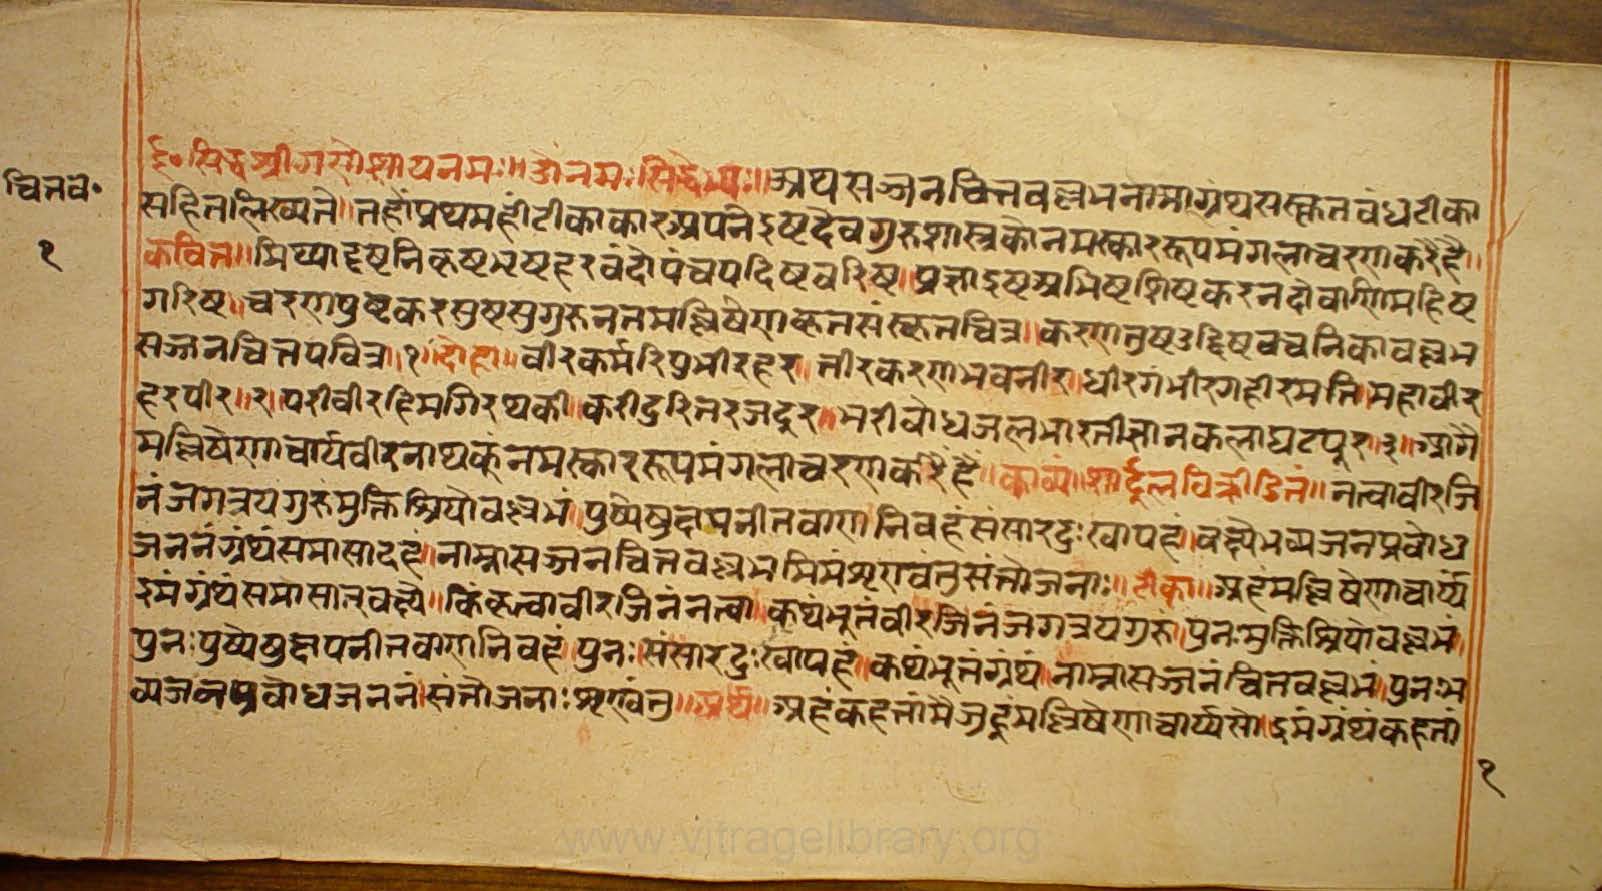 चित्तव॰
१
ई॰ सिद्ध श्रीगणेशायनमः॥ उोंनमः सिद्धेभ्यः॥ अथसज्जनचित्तवल्लभनामाग्रंथसंस्कृतबंधटीका
सहितलिख्यते॥ तहांप्रथमहीटीकाकारअपनेइष्टदेवगुरुशास्त्रकौनमस्काररूपमंगलाचरणकरेहै॥
कवित्त॥ मिथ्यादृष्टनिकृष्टभ्रष्टहरवंदौपंचपदिष्टवरिष्ट॥ प्रज्ञाइष्टअमिष्टशिष्टकरनदौवाणीमहिष्ट
गरिष्ट॥ चरणपुष्टकरसुष्टसुगुरुनुतमल्लिषेणकृतसंस्कृतचित्र॥ करणतुष्टउद्दिष्टवचनिकावल्लभ
सज्जनचित्तपवित्र॥१॥ दोहा॥ वीरकर्मरिपुभीरहर॥ तीरकरणभवनीर॥ धीरगंभीरगहीरमति॥ महावीर
हरपीर॥२॥ परीवीरहिमगिरथकी॥ करीदुरितरजदूर॥ भरीवोधजलभारतीज्ञानकलाघटपूर॥३॥ आगै
मल्लिषेणाचार्यवीरनाथकूंनमस्काररूपमंगलाचरणकरेहैं॥ काव्यं॥ शार्दूलविक्रीडितं॥ नत्वावीरजि
नंजगत्रयगुरुंमुक्तिश्रियोवल्लभं॥ पुष्पेषुक्षपनीतवाणनिवहंसंसारदुःखापहं॥ वक्ष्येभव्यजनप्रवोध
जननंग्रंथंसमासादहं॥ नाम्नासज्जनचित्तवल्लभमिमंशृण्वंतुसंतोजनाः॥ टीका॥ अहंमल्लिषेणाचार्य्य
इमंग्रंथंसमासात्वक्ष्ये॥ किंकृत्वावीरजिनंनत्वा॥ कथंभूतंवीरजिनंजगत्रयगुरुं॥ पुनःमुक्तिश्रियोवल्लभं॥
पुनःपुष्पेषुक्षपनीतवाणनिवहं॥ पुनःसंसारदुःखापहं॥ कथंभूतंग्रंथं॥ नाम्नासज्जनंचित्तवल्लभं॥ पुनःभ
व्यजनप्रवोधजननं॥ संतोजनाःशृण्वंतु॥ अर्थ॥ अहंकहतांमैजुहूंमल्लिषेणाचार्य्यसो॥ इमंग्रंथंकहतां
१
www.vitragelibrary.org